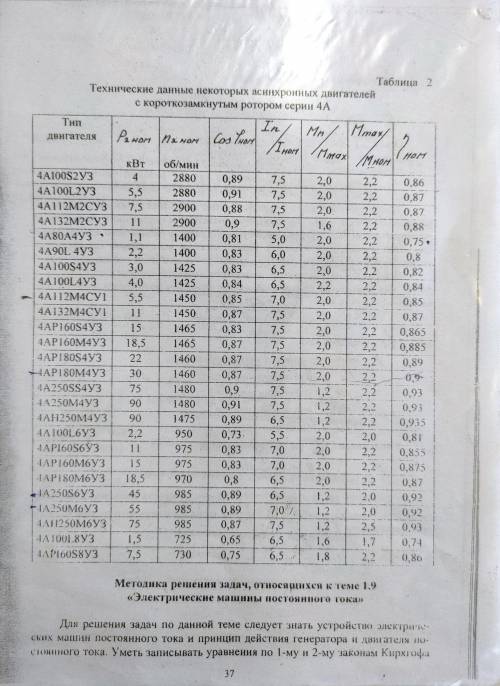 Таблица 2
Технические данные некоторых асинхронных двигателей
с короткозамкнутым ротором серии 4А
Тип двигателя P2 ном кВт n2 ном об/мин Cos φном Iп/Iном Mп/Mmax Mmax/Mном ηном
4А100S2У3 4 2880 0,89 7,5 2,0 2,2 0,86
4А100L2У3 5,5 2880 0,91 7,5 2,0 2,2 0,87
4А112М2СУ3 7,5 2900 0,88 7,5 2,0 2,2 0,87
4А132М2СУ3 11 2900 0,9 7,5 1,6 2,2 0,88
4А80А4У3 1,1 1400 0,81 5,0 2,0 2,2 0,75
4А90L 4У3 2,2 1400 0,83 6,0 2,0 2,2 0,8
4А100S4У3 3,0 1425 0,83 6,5 2,0 2,2 0,82
4А100L4У3 4,0 1425 0,84 6,5 2,2 2,2 0,84
4А112М4СУ1 5,5 1450 0,85 7,0 2,0 2,2 0,85
4А132М4СУ1 11 1450 0,87 7,5 2,0 2,2 0,87
4АР160S4У3 15 1465 0,83 7,5 2,0 2,2 0,865
4АР160М4У3 18,5 1465 0,87 7,5 2,0 2,2 0,885
4АР180S4У3 22 1460 0,87 7,5 2,0 2,2 0,89
4АР180М4У3 30 1460 0,87 7,5 2,0 2,2 0,9
4А250SS4У3 75 1480 0,9 7,5 1,2 2,2 0,93
4А250М4У3 90 1480 0,91 7,5 1,2 2,2 0,93
4АН250М4У3 90 1475 0,89 6,5 1,2 2,2 0,935
4А100L6У3 2,2 950 0,73 5,5 2,0 2,0 0,81
4АР160S6У3 11 975 0,83 7,0 2,0 2,2 0,855
4АР160М6У3 15 975 0,83 7,0 2,0 2,2 0,875
4АР180М6У3 18,5 970 0,8 6,5 2,0 2,2 0,87
4А250S6У3 45 985 0,89 6,5 1,2 2,0 0,92
4А250М6У3 55 985 0,89 7,0 1,2 2,0 0,92
4АН250М6У3 75 985 0,87 7,5 1,2 2,5 0,93
4А100L8У3 1,5 725 0,65 6,5 1,6 1,7 0,74
4АР160S8У3 7,5 730 0,75 6,5 1,8 2,2 0,86
Методика решения задач, относящихся к теме 1.9
«Электрические машины постоянного тока»
Для решения задач по данной теме следует знать устройство электриче-
ских машин постоянного тока и принцип действия генератора и двигателя по-
стоянного тока. Уметь записывать уравнения по 1-му и 2-му законам Кирхгофа
37